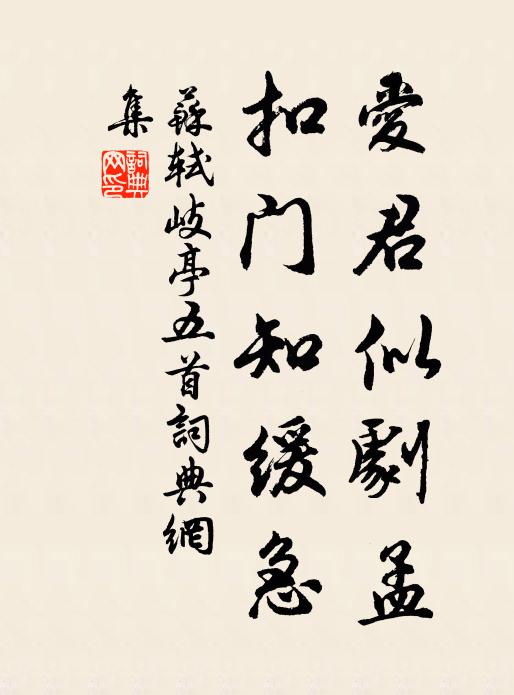 愛君似劇孟
扣门知緩急
蘇軾岐亭五首詞典網
集
詞典
网印